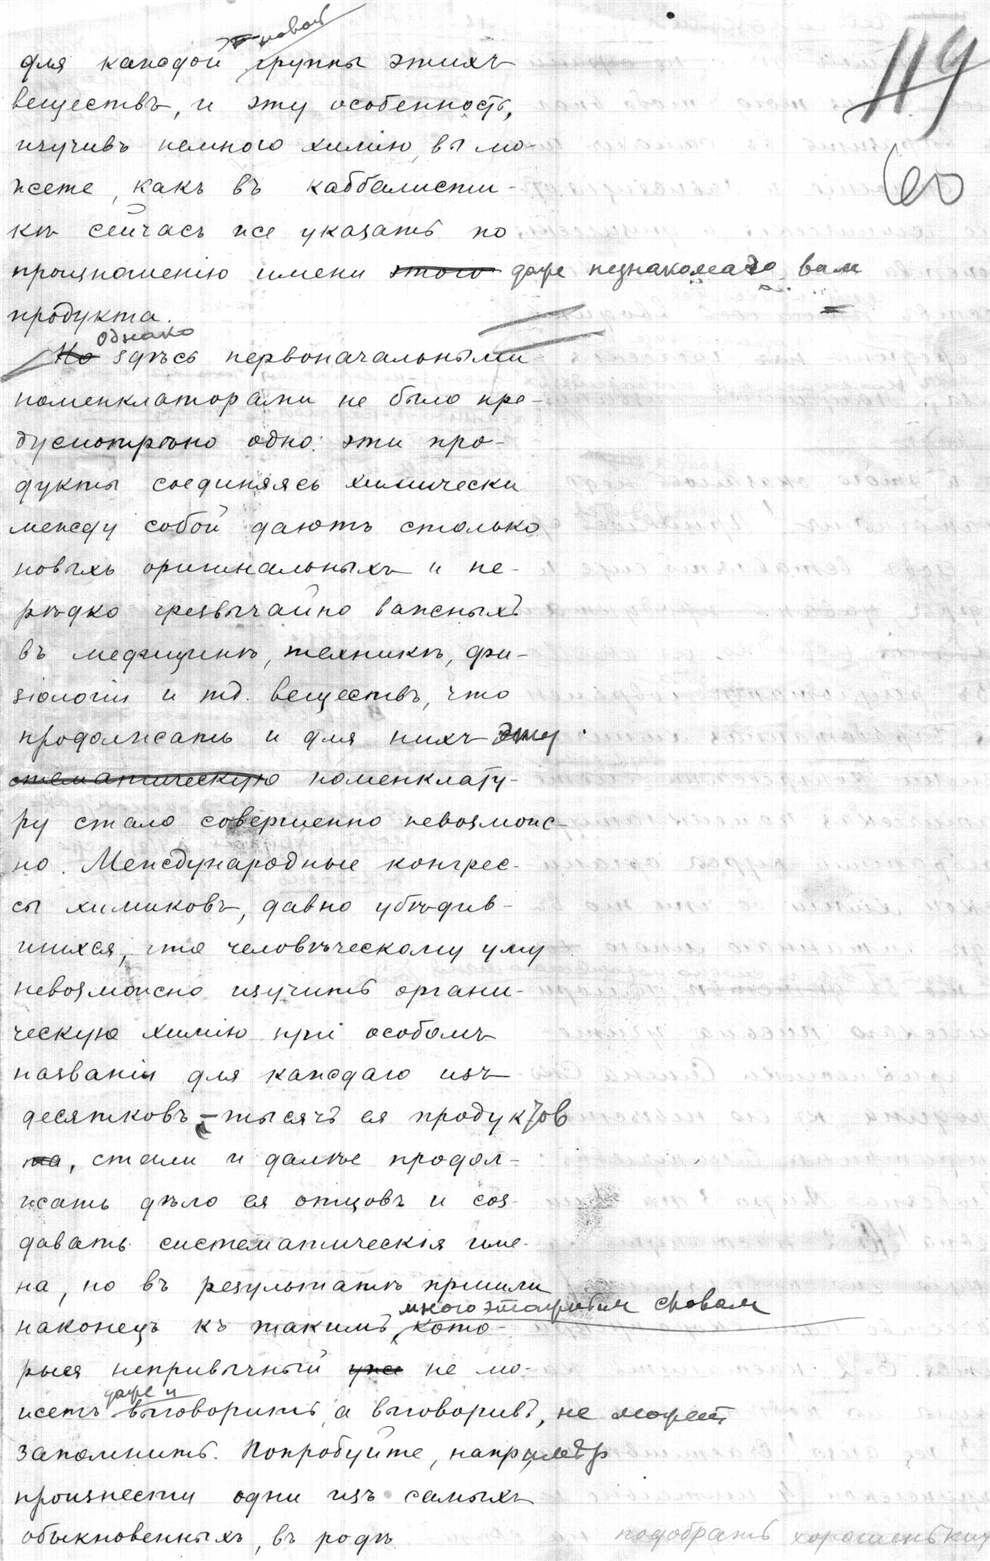 новой
119
для каждой группы этихъ
веществъ, и эту особенность,
изучивъ немного химію, вы мо-
60
жете, какъ въ каббалисти-
кѣ сейчасъ же указать по
произношенію имени этого даже незнакомаго вам
продукта.
Однако
Но здѣсь первоначальными
номенклаторами не было пре-
дусмотрѣно одно: эти про-
дукты соединяясь химически
между собой даютъ столько
новыхъ оригинальныхъ и не-
рѣдко чрезвычайно важныхъ
въ медицинѣ, техникѣ, фи-
зіологіи и тд. веществъ, что
продолжать и для нихъ эту
систематическую номенклату-
ру стало совершенно невозмож-
но. Международные конгрес-
сы химиковъ, давно убѣдив-
шихся, что человѣческому уму
невозможно изучить органи-
ческую химію при особомъ
названіи для каждаго изъ
десятковъ-тысячъ ея продуктов
та, стали и далѣе продол-
жать дѣло ея отцовъ и соз-
давать систематическія име-
на, но въ результатѣ пришли
многоэтажным словам
наконецъ къ такимъ, кото-
рыя непривычный уже не мо-
даже и
жетъ выговорить, а выговоривъ, не может
запомнить. Попробуйте, напримѣр
произнести одни изъ самыхъ
обыкновенныхъ, въ родѣ
подобрать хорошеньких